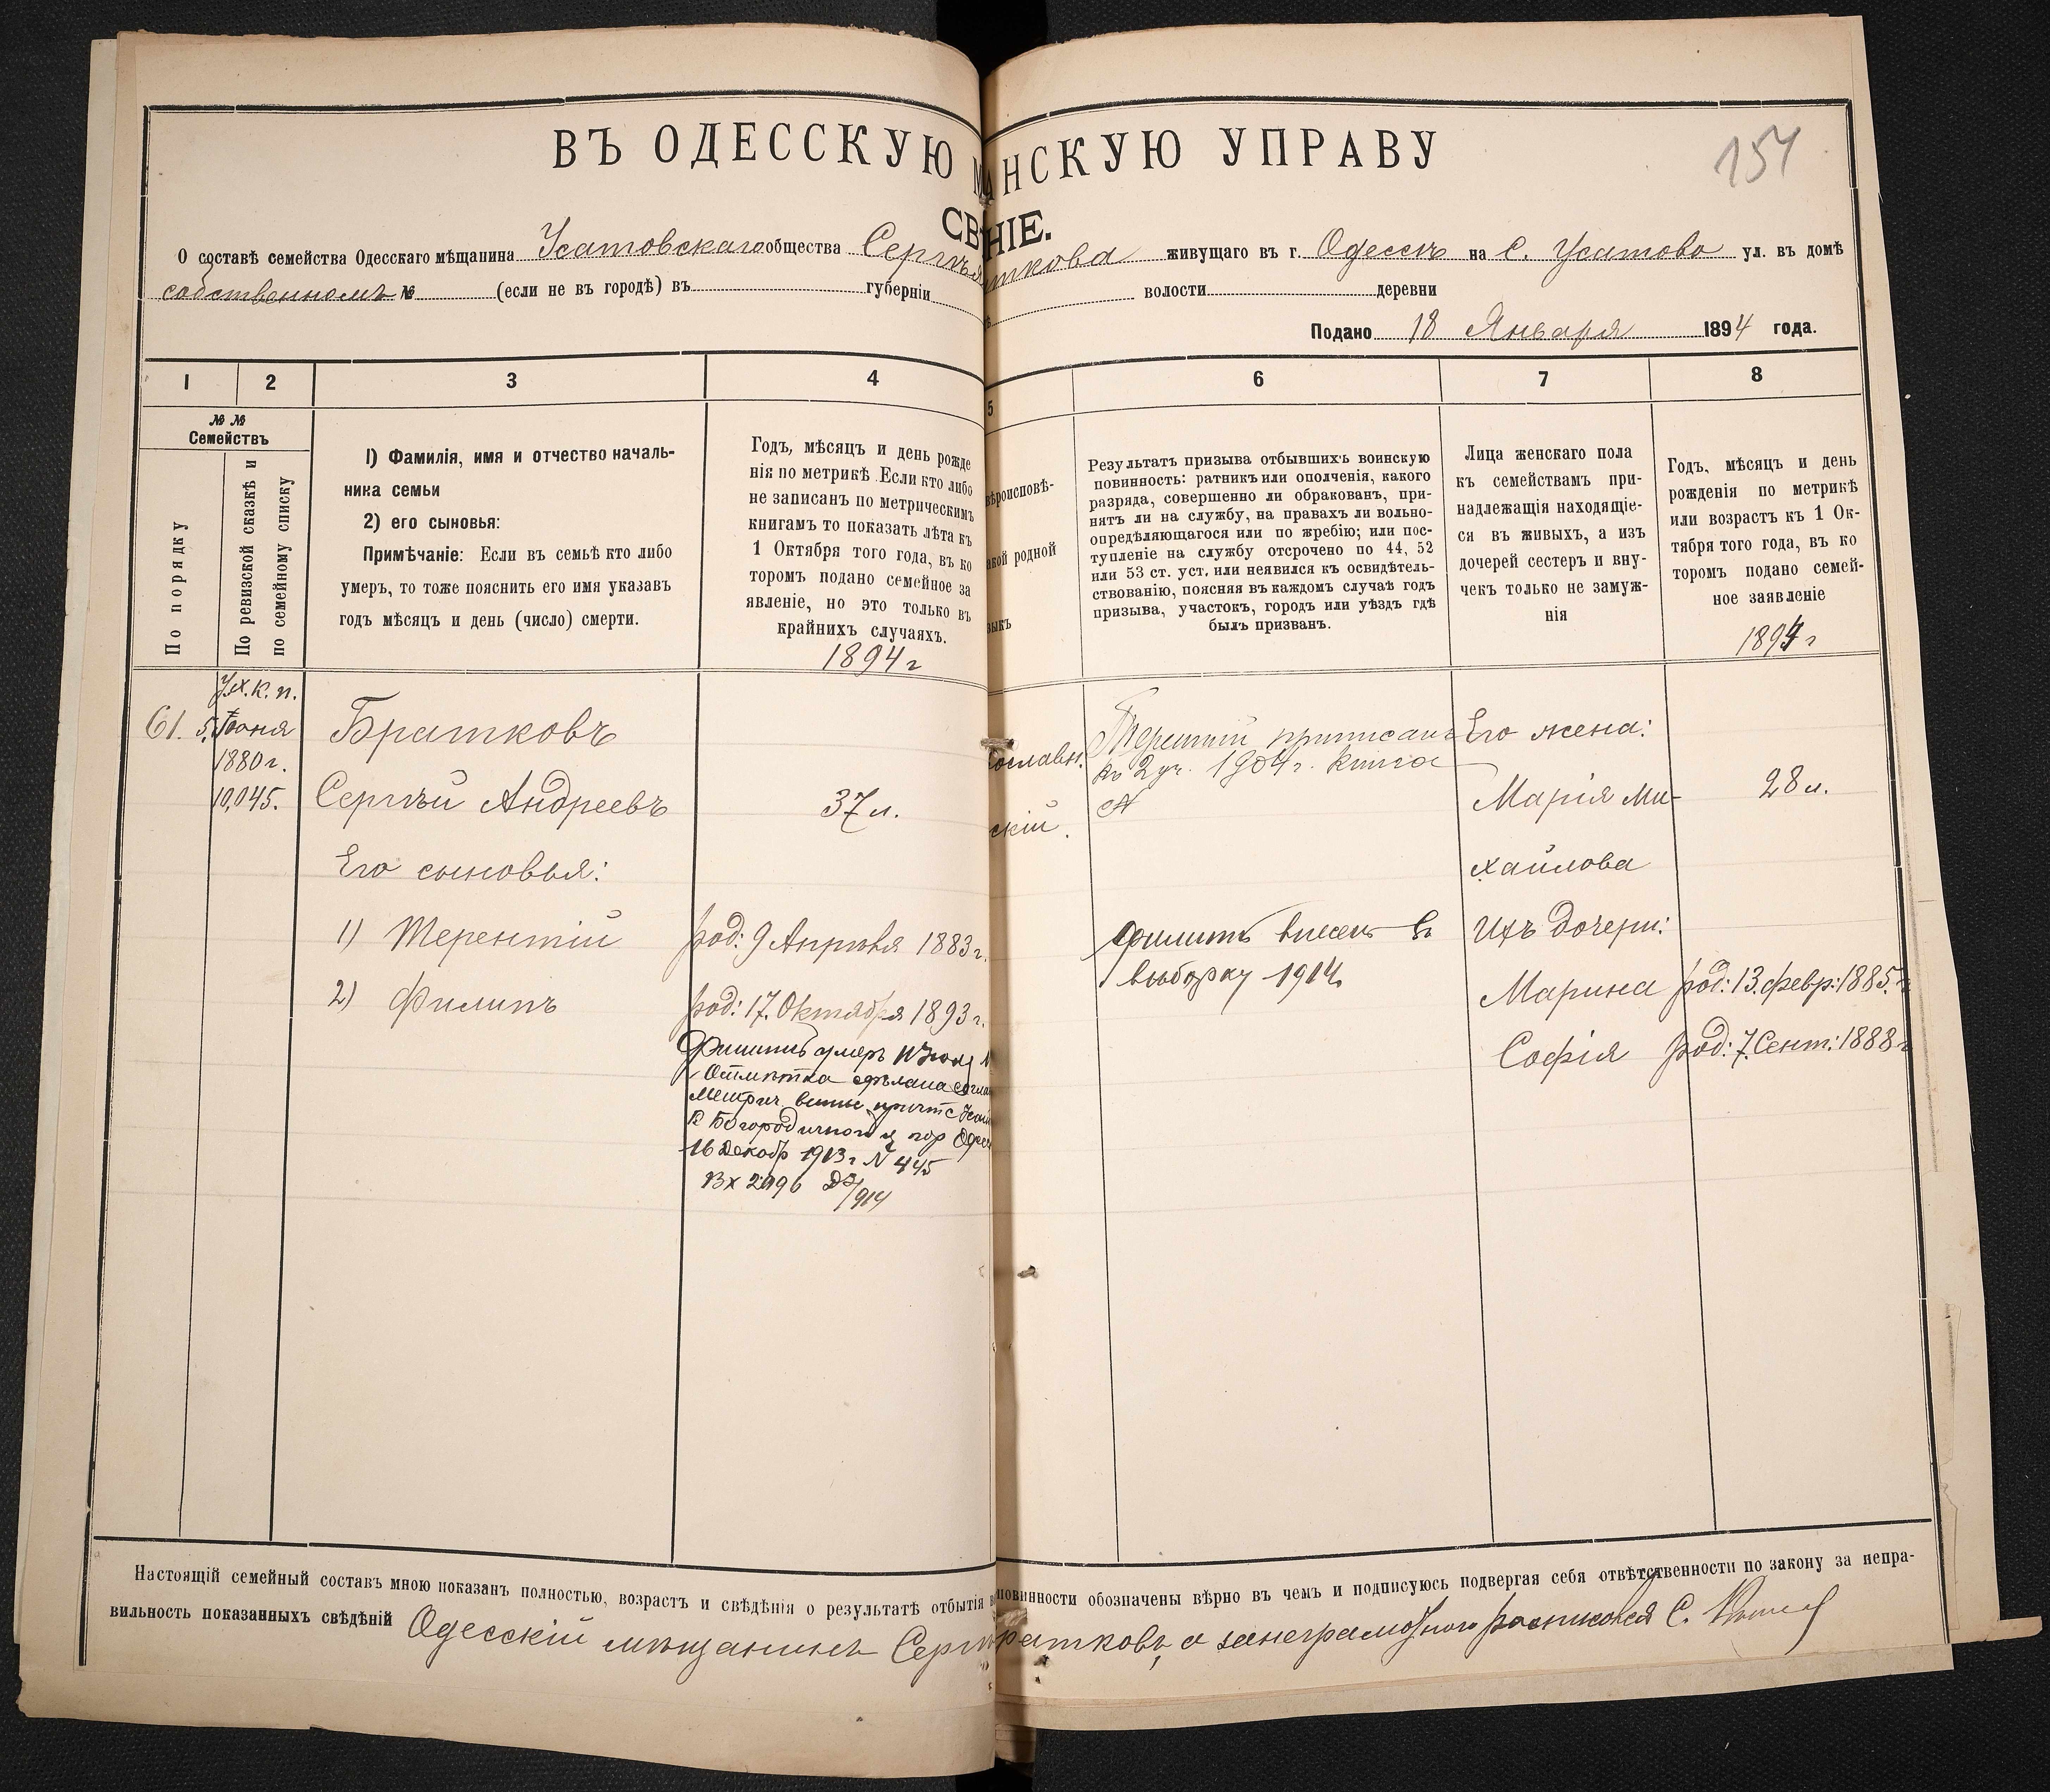 154
ВЪ ОДЕССКУЮ МѢ АНСКУЮ УПРАВУ
СВѢ НІЕ.
О составѣ семейства Одесскаго мѣщанина Усатовскаго общества Сергѣя ткова живущаго въ г. Одессѣ на С. Усатово ул. въ домѣ
собственномъ № (если не въ городѣ) въ губерніи волости деревни
Подано 18 Января 1894 года.
1 2 3 4 5 6 7 8
№ №
Семействъ
По порядку
По ревизской сказкѣ и
по семейному списку
1) Фамилія, имя и отчество началь-
ника семьи
2) его сыновья:
Примѣчаніе: Если въ семьѣ кто либо
умеръ, то тоже пояснить его имя указавъ
годъ мѣсяцъ и день (число) смерти.
Годъ, мѣсяцъ и день рожде
нія по метрикѣ. Если кто либо
не записанъ по метрическимъ
книгамъ то показать лѣта къ
1 Октября того года, въ ко
торомъ подано семейное за
явленіе, но это только въ
крайнихъ случаяхъ.
1894 г
вѣроисповѣ-
акой родной
зыкъ
Результатъ призыва отбывшихъ воинскую
повинность: ратникъ или ополченія, какого
разряда, совершенно ли обракованъ, при-
нятъ ли на службу, на правахъ ли вольно-
опредѣляющагося или по жребію; или пос-
тупленіе на службу отсрочено по 44, 52
или 53 ст. уст. или неявился къ освидѣтель-
ствованію, поясняя въ каждомъ случаѣ годъ
призыва, участокъ, городъ или уѣздъ гдѣ
былъ призванъ.
Лица женскаго пола
къ семействамъ при-
надлежащія находящіе-
ся въ живыхъ, а изъ
дочерей сестеръ и вну-
чекъ только не замуж-
нія
Годъ, мѣсяцъ и день
рожденія по метрикѣ
или возрастъ къ 1 Ок-
тября того года, въ ко
торомъ подано семей-
ное заявленіе
1894 г
Ук. К. п.
61. 5. Іюня
1880 г.
10,045.
Братковъ
Сергѣй Андреевъ
37 л.
Его сыновья:
1) Терентій род: 9 Апрѣля 1883 г.
2) Филипъ род: 17. Октября 1893 г.
Филипъ умеръ
Отмѣтка сдѣлана согла
Метрич.
Р Богородичной ц гор Одес
16 Декабр 1913 г N 445
Вх 2996
914
ославн.
скій.
Терентій приписанъ
къ 2 уч. 1904 г. Книга
А
Филипъ внесен в
выборку 1914
Его жена:
Марія Ми-
хайлова
28 л.
Ихъ дочери:
Марина род: 13. февр: 1885. г
Софія род: 7. Сент: 1888 г
Настоящій семейный составъ мною показанъ полностью, возрастъ и свѣдѣнія о результатѣ отбытія в повинности обозначены вѣрно въ чемъ и подписуюсь подвергая себя отвѣтственности по закону за непра-
вильность показанныхъ свѣдѣній Одесскій мѣщанинъ Серг ратковъ, а за неграмотнаго росписался С.